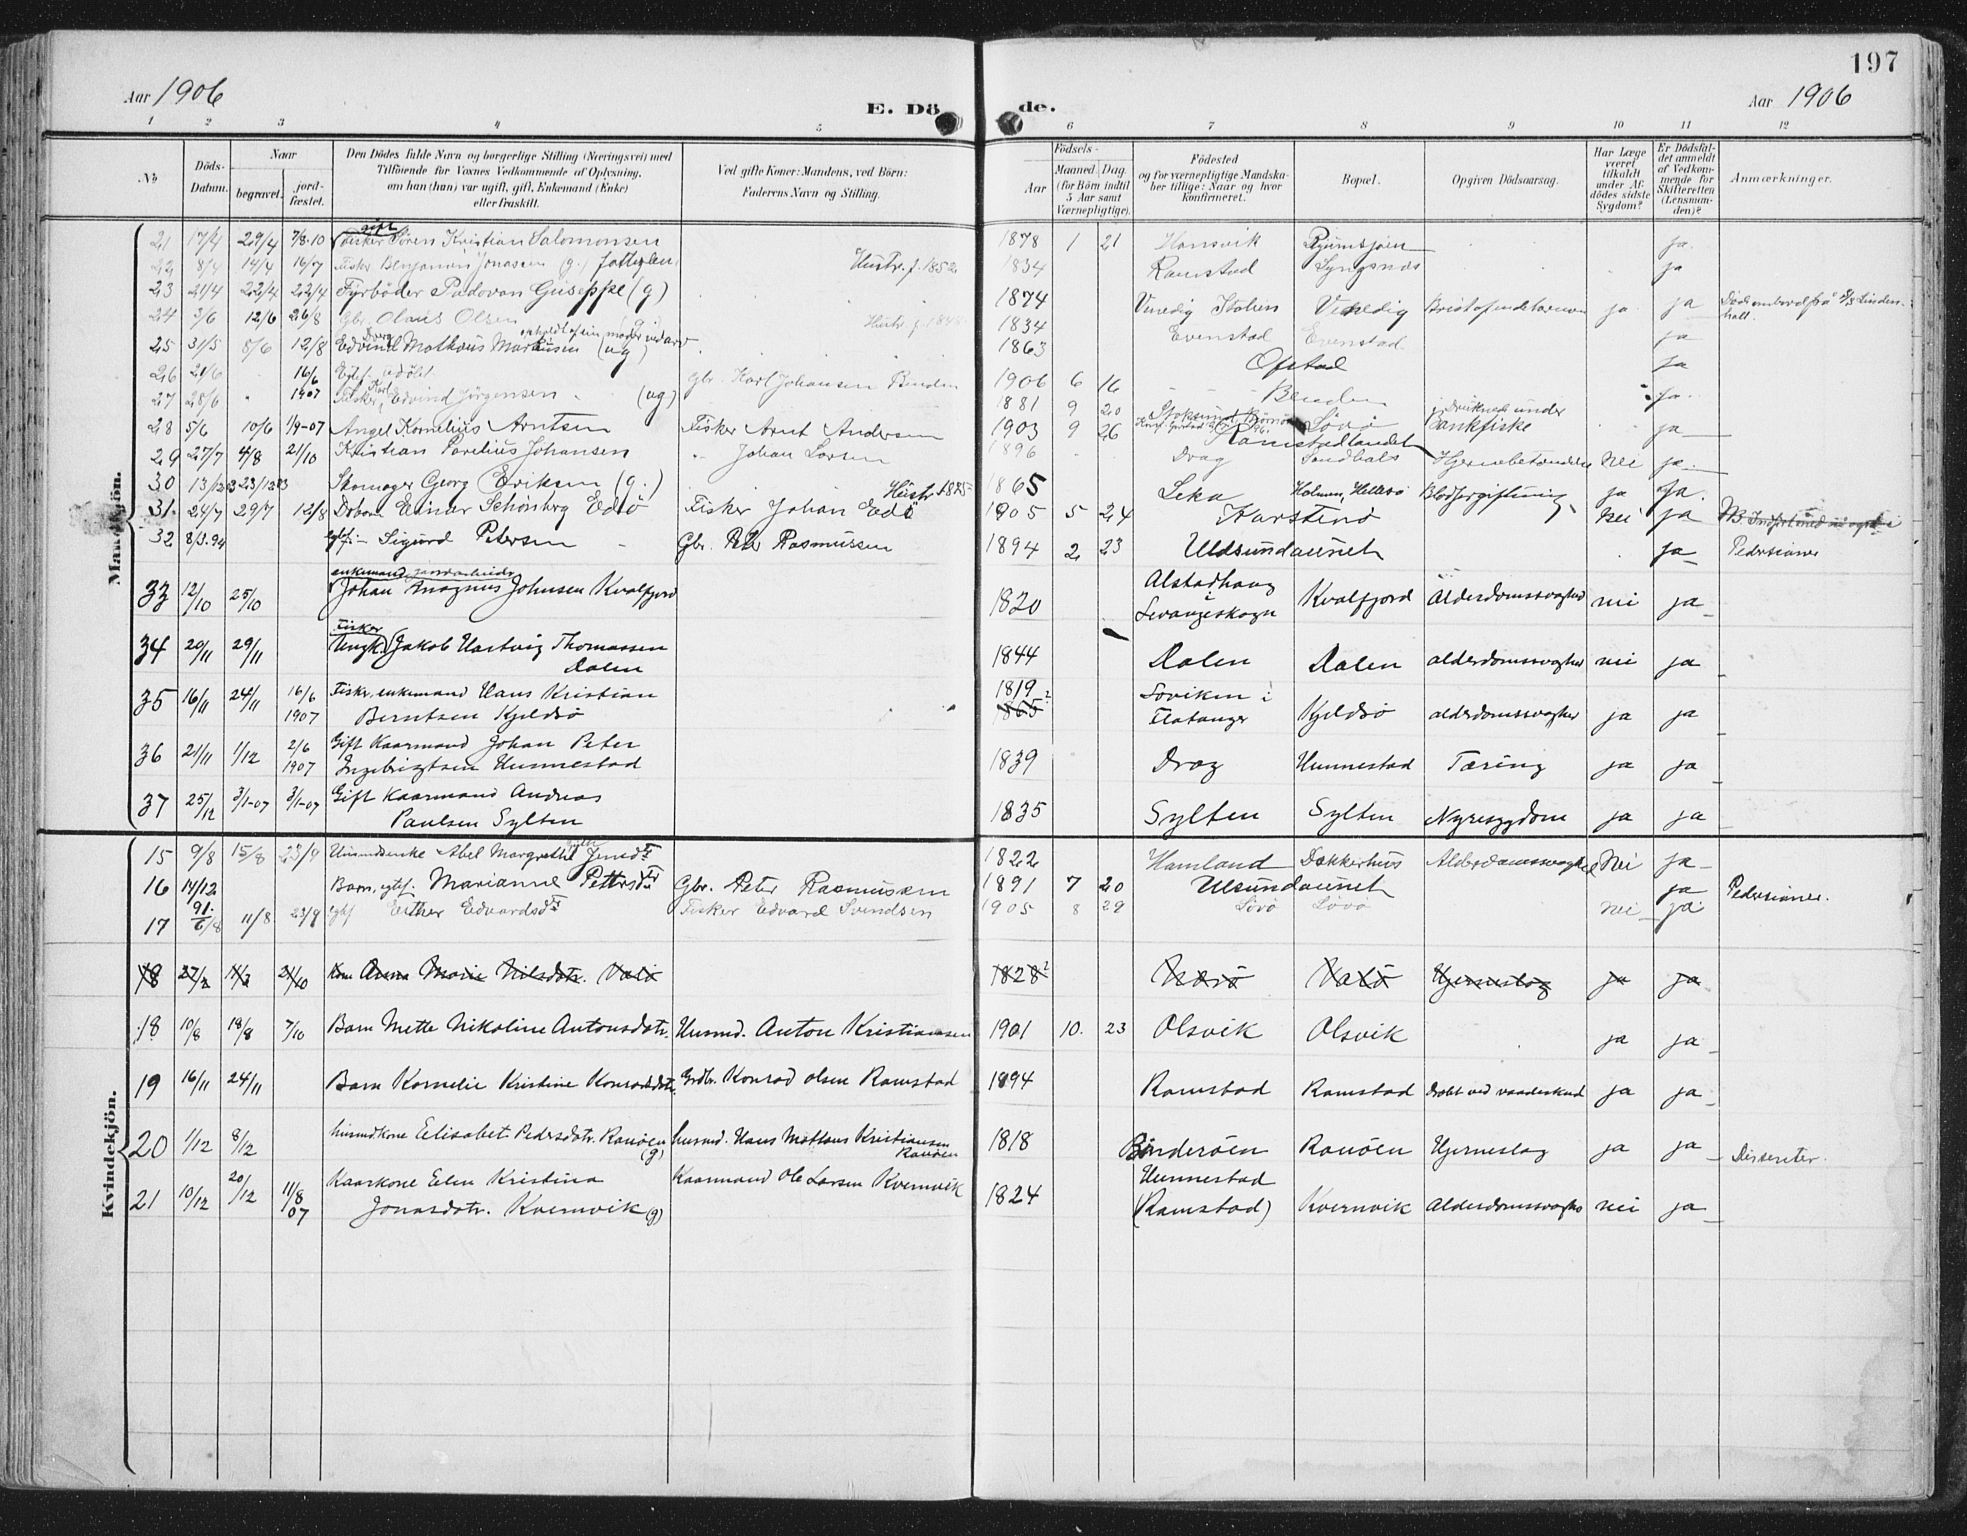 197
Aar 1906
E. Dö
de.
Aar 1906
1 2 3 4 5 6 7 8 9 10 11 12
No
Döds-Datum.
Naar
begravet.
jordfæstet.
Den Dödes fulde Navn og borgerlige Stilling (Næringsvei) med
Tilföiende for Voxnes Vedkommende af Oplysning,
om han (hun) var ugift, gift, Enkemand (Enke)
eller fraskilt.
Ved gifte Koner: Mandens, ved Börn:
Faderens Navn og Stilling.
Födsels-
Aar
Maaned Dag
(for Börn indtil
5 Aar samt
Værnepligtige).
Födested
og for værnepligtige Mandska-
ber tillige: Naar og hvor
konfirmeret.
Bopæl.
Opgiven Dödsaarsag.
Har Læge
været
tilkaldt
under Af-
dödes sidste
Sygdom?
Er Dödsfal-
det anmeldt
af Vedkom-
mende for
Skifteretten
(Lensman-
den)?
Anmærkninger.
Mandkjön.
21 17/4 29/4 7/8-10 gift Fisker Sören Kristian Salomonsen 1878 1 21 Hansvik ja
22 8/4 14/4 16/7 Fisker Benjamin Jonassen (g.) Hustr. f. 1852 1834 Ramstad Lyngsnes ja
23 21/4 22/4 22/4 Fyrböder Padovan Guiseppe (g) 1874 Venedig Italien Venedig ja ja
24 3/6 12/6 26/8 Gbr. Olaus Olsen 1834 Evenstad Evenstad ja
25 31/5 5/6 12/8 Edvind Mathæus (ug) 1863 Ofstad ja
26 21/6 16/6 1907 Gbr. Karl Johansen Binden 1906 6 16 ja
27 28/6 Fisker Karl Edvind Jörgensen (ug) 1881 9 20 Sövö Druknede under Bankfiske ja
28 5/6 10/6 1/9-07 Angel Kornelius Arntsen Fisker Arnt Andersen 1903 9 26 Ramstadlandet
29 27/7 4/8 21/10 Kristian Parelius Johansen " Johan Larsen 1896 Drag Sandhals Hjernebetændelse Nei ja
30 13/12 23/12 Skomager Georg Eriksen (g.) Hustr 1865 Leka Blodforgiftning ja ja
31. 24/7 29/7 12/8 Einar Schönberg Edsö Fisker Johan Edsö 1905 5 24 Karstenö Nei ja
32 8/3.94 Sigurd Petersen Gbr. Peter Rasmussen 1894 2 23 Uldsundaunet ja Pedersianer
33 12/10 25/10 enkemand Johan Magnus Johnsen Kvalfjord 1820 Alstadhaug i Levangeskogn Kvalfjord Alderdomssvaghed nei ja
34 20/11 29/11 Fisker Ungk. Jakob Hartvig Thomassen Dalen 1844 Dalen Dalen alderdomssvaghed nei ja
35 16/11 24/11 16/6 1907 Fisker, enkemand Hans Kristian Berntsen Kjeldsö 1819 1865 Soviken i Flatanger Kjeldsö alderdomssvaghed ja ja
36 21/11 1/12 2/6 1907 Gift Kaarmand Johan Peter Ingebrigtsen Hunnestad 1839 Drag Hunnestad Tæring ja ja
37 25/12 3/1-07 3/1-07 Gift Kaarmand Andreas Paulsen Sylten 1835 Sylten Sylten Nyresygdom ja ja
Kvindekjön.
15 9/8 15/8 23/9 Husmdsenke Abel Margrethe Jensdtr 1822 Hamland Dekkerhus Alderdomssvaghed Nei ja
16 14/12 91. Barn, egtef. Marianne Petersdtr Gbr. Peter Rasmussen 1891 7 20 Ulsundaunet ja Pedersianer.
17 6/8 11/8 23/9 egtef Esther Edvardsdtr Fisker Edvard Svendsen 1905 8 29 Sövö Sövö Nei ja
18 27/2 21/10 Kone Anna Marie Nilsdatr. Valö 1828 Værö Valö Hjerneslag ja ja
18 10/8 18/8 7/10 Barn Mette Nikoline Antonsdatr. Husmd. Anton Kristiansen 1901 10. 23 Olsvik Olsvik ja ja
19 16/11 24/11 Barn Kornelie Kristine Konradsdatr. Grdbr. Konrad Olsen Ramstad 1894 Ramstad Ramstad Dræbt ved vaadeskud ja ja
20 1/12 8/12 husmdkone Elisabet Pedersdatr. Rauöen (g) husmd. Hans Mathæus Kristiansen Rauöen 1818 Binderöen Rauöen Hjerneslag ja ja Dissenter.
21 10/12 20/12 11/8 07 Kaarkone Elen Kristina Jonasdatr. Kvernvik (g) Kaarmand Ole Larsen Kvernvik 1824 Hunnestad (Ramstad) Kvernvik Alderdomssvaghed nei ja